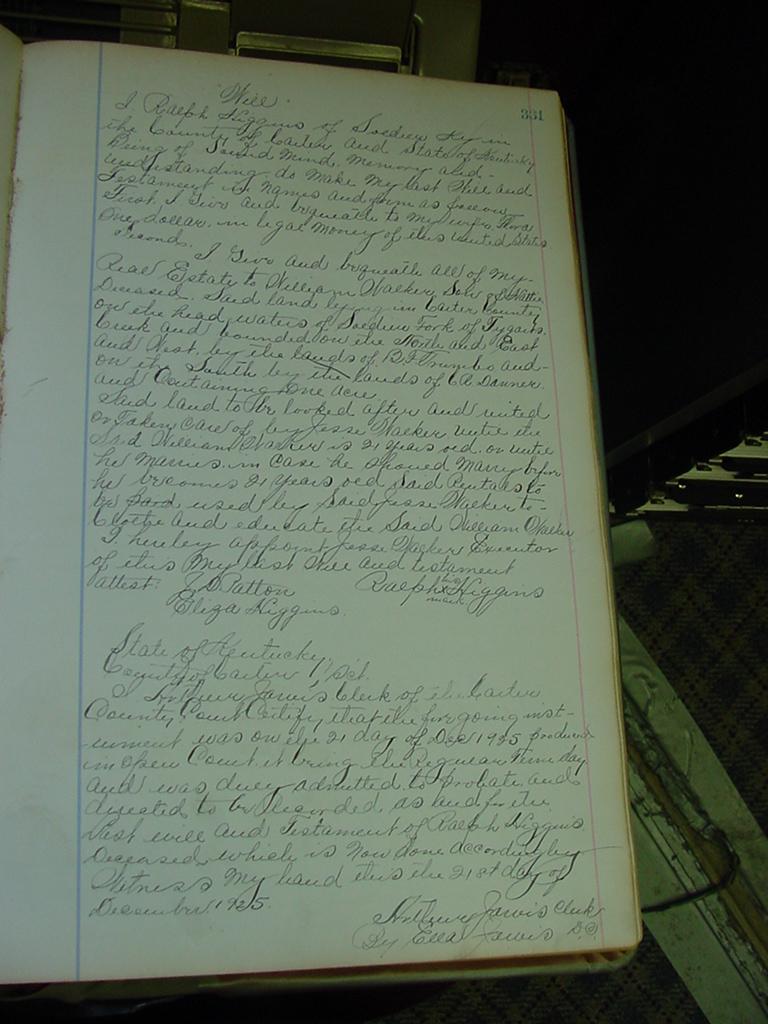 "Will"
331
I Ralph Higgins of Soldier Ky in
the County of Carter and State of Kentucky
being of Sound Mind, Memory and
understanding do Make My last Will and
Testament in Names and form as follow
First, I Give and bequeath to My wife, Flora
One dollar, in legal Money of this United States
Second. I Give and bequeath all of My
Real Estate to William Walker, Son of Hattie
Deceased. Said land lying in Carter County
on the head waters of Soldier Fork of Tygarts
Creek and bounded on the North and East
and West, by the lands of B.F. Trumbo and
on the South by the lands of Danner.
and Containing One Acre.
Said land to be looked after and rented
or Taken Care of by Jesse Walker until the
Said William Walker is 21 years old, or until
he Marries, in Case he should Marry before
he becomes 21 years old Said Rentals to
be paid used by Said Jesse Walker to
Clothe and educate the Said William Walker
I hereby appoint Jesse Walker Executor
of this My last Will and testament
attest: J.D. Patton Ralph his x mark Higgins
Eliza Higgins.
State of Kentucky,
County of Carter, Sct.
I Arthur Jarvis Clerk of the Carter
County Court Certify that the foregoing inst-
-rument was on the 21 day of Dec 1925 produced
in open Court it being the Regular Term day
and was duly admitted to probate and
directed to be Recorded, as and for the
last will and Testament of Ralph Higgins
Deceased, which is Now done accordingly
Witness My hand this the 21st day of
December, 1925.
Arthur Jarvis Clerk
By Ella Jarvis D.C.